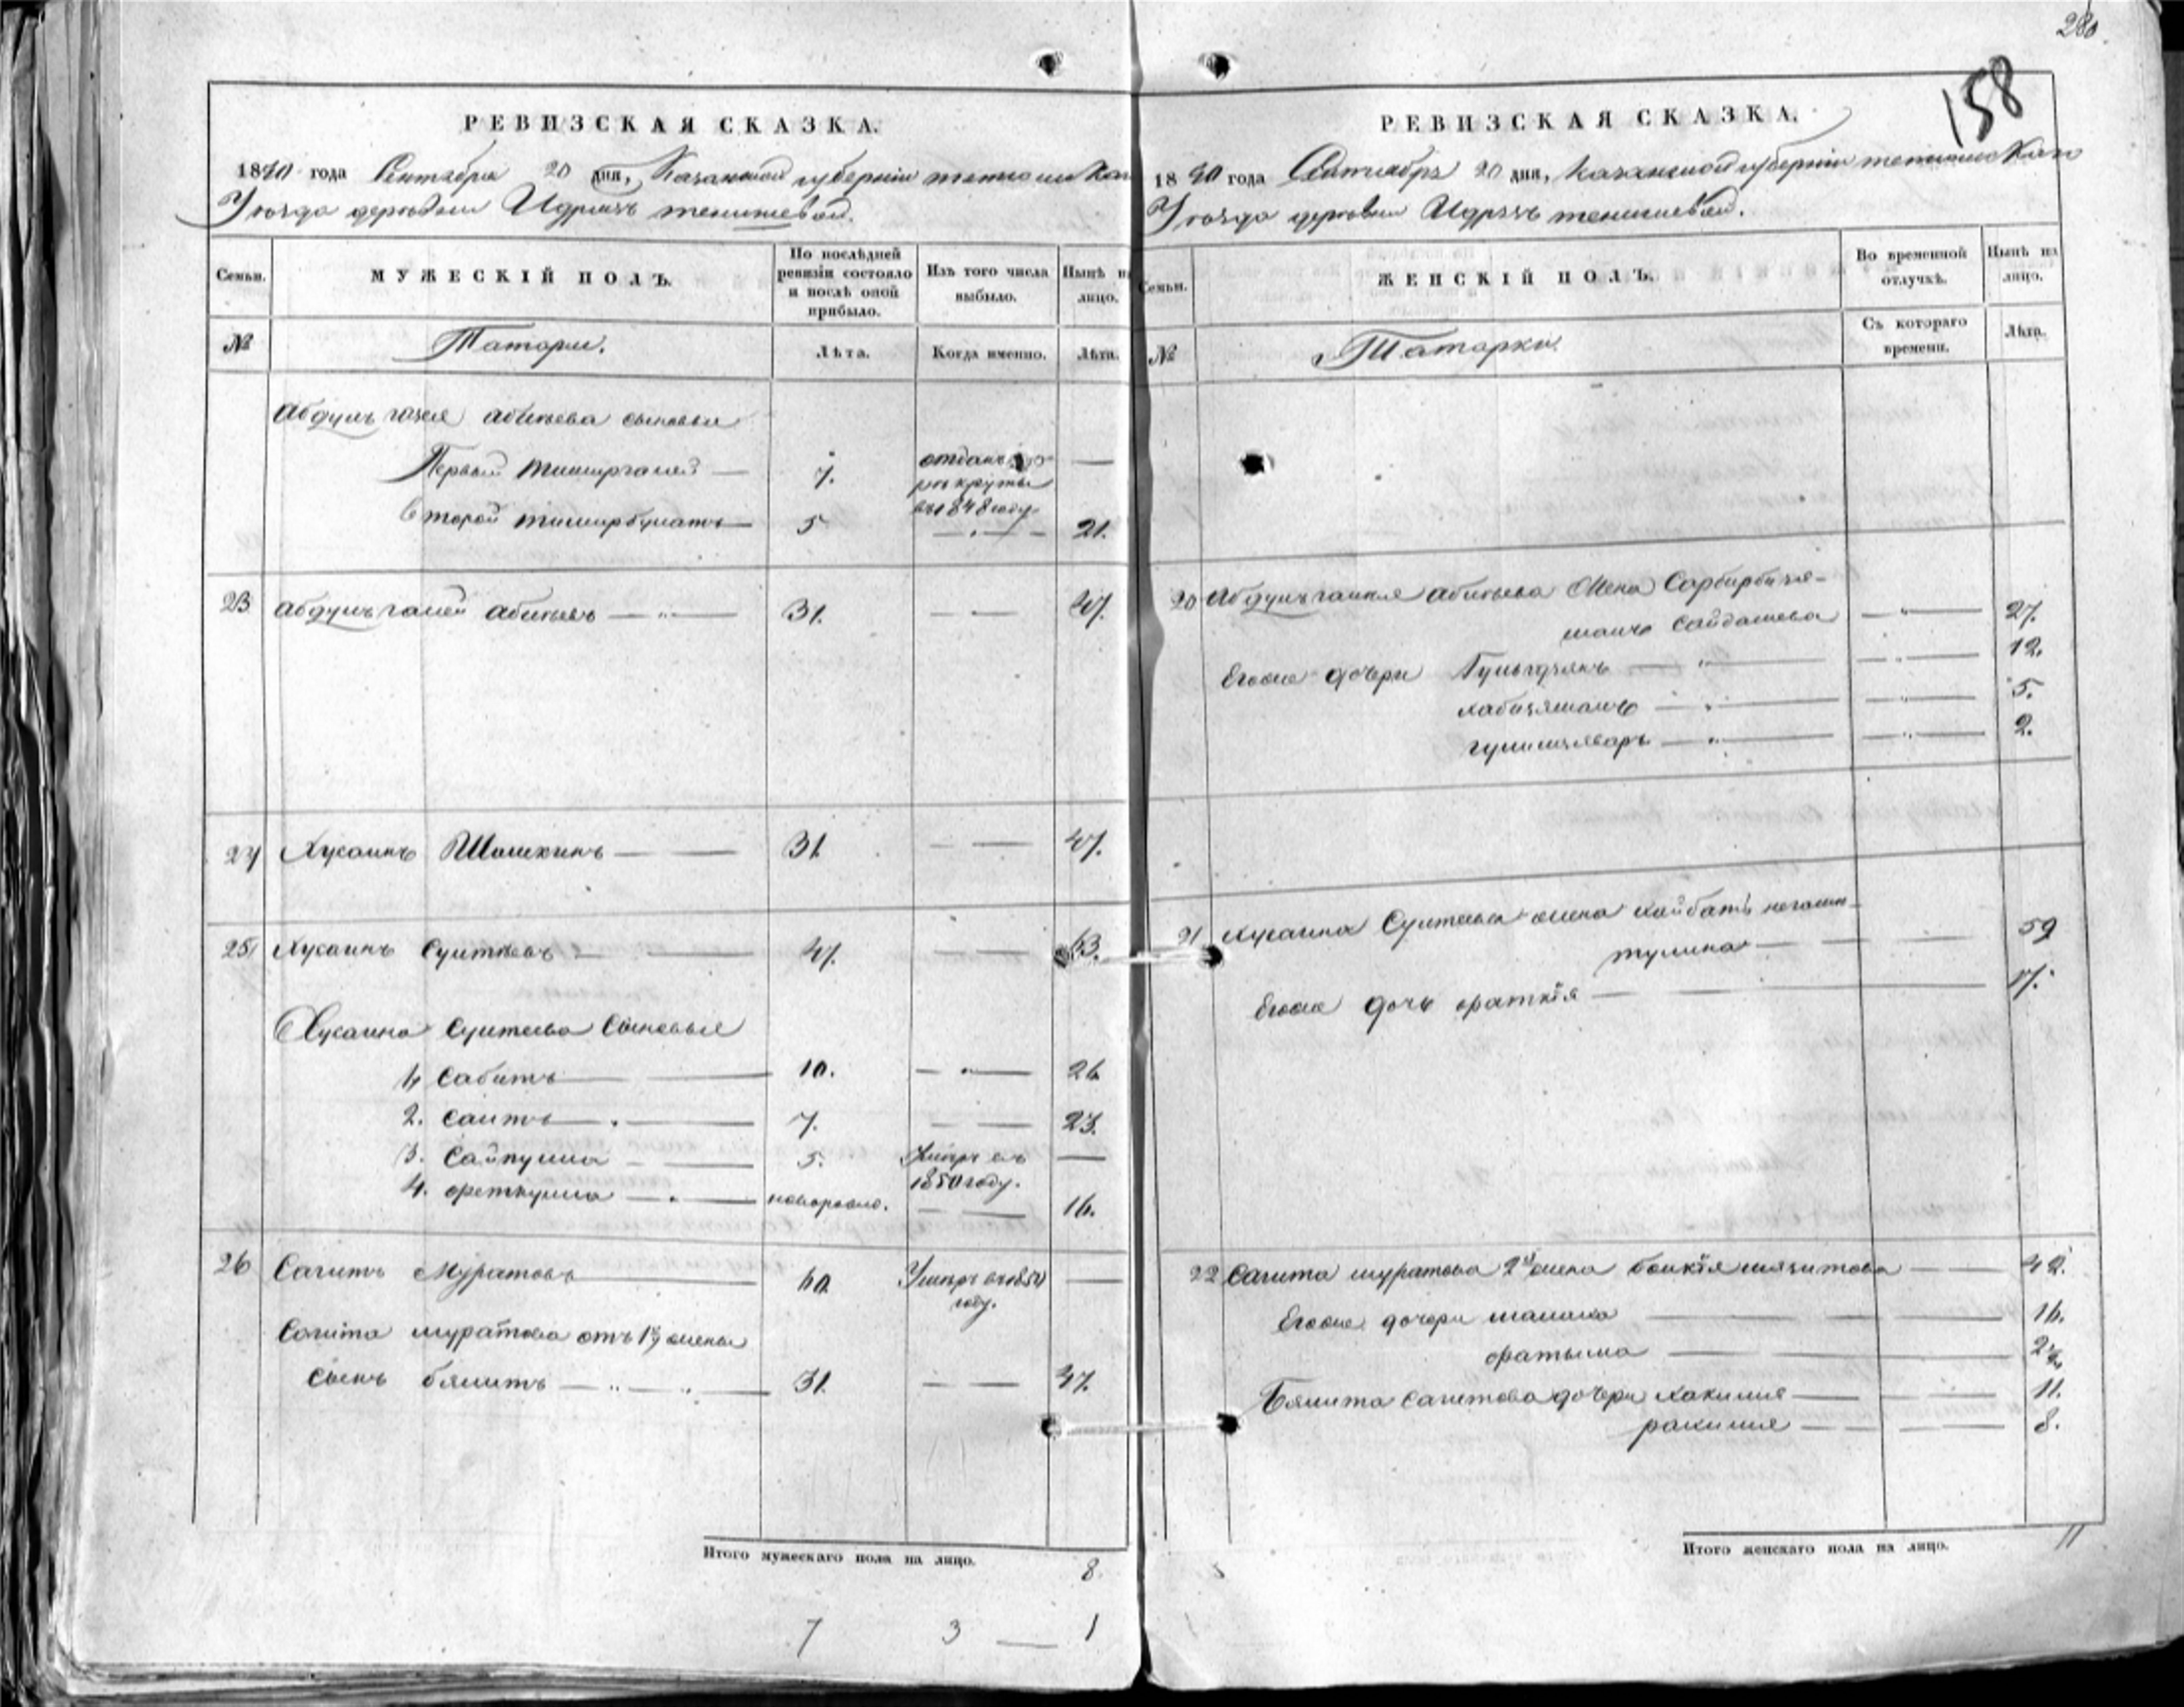 280
158
РЕВИЗСКАЯ СКАЗКА.
1850 года Сентября 20 дня, Казанской губернии тетюшскаго
Уезда деревни Идряс тенишевой.
Семьи.
МУЖЕСКІЙ ПОЛЪ.
По послѣдней ревизіи состояло и послѣ оной прибыло.
Изъ того числа выбыло.
Нынѣ на лицо.
№
Татары.
Лѣта.
Когда именно.
Лѣта.
Абдулъ Абитева сыновья
Первый — 7. отданъ въ рекруты въ 1848 году —
Второй тимирбулатъ — 5 — 21.
23 Абдулъ галей Абитевъ — 31. — 47.
24 Хусаинъ Шашкинъ — 31. — 47.
25 Хусаинъ Суитеевъ — 47. — 63.
Хусаина Суитеева Сыновья
1, Сабитъ — 10. — 26
2. Саитъ — 7. — 23.
3. Сайпулла — 5. Умеръ въ 1850 году. —
4. фетхулла — новорожд. — 16.
26 Сагитъ Муратовъ — 60. Умеръ въ 1850 году. —
Сагита муратова отъ 1й жены
сынъ бямитъ — 31. — 47.
Итого мужескаго пола на лицо. 8.
7 3 — 1
РЕВИЗСКАЯ СКАЗКА.
1850 года Сентября 20 дня, Казанской губерніи тетюшскаго
Уезда деревни Идряс тенишевой.
Семьи.
ЖЕНСКІЙ ПОЛЪ.
Во временной отлучкѣ.
Нынѣ на лицо.
№
Татарки
Съ котораго времени.
Лѣта.
20 Абитева Жена
Сайдашева — 27.
Егоже дочери — 12.
— 5.
— 2.
21 Хусаина Суитеева жена хайбатъ
— 59
Егоже дочь фаткія — 17.
22 Сагита муратова 2я жена — 42.
Егоже дочери — 16.
фатыма —
Бямита сагитова дочери хакимя — 11.
ракимя — 8.
Итого женскаго пола на лицо. 11